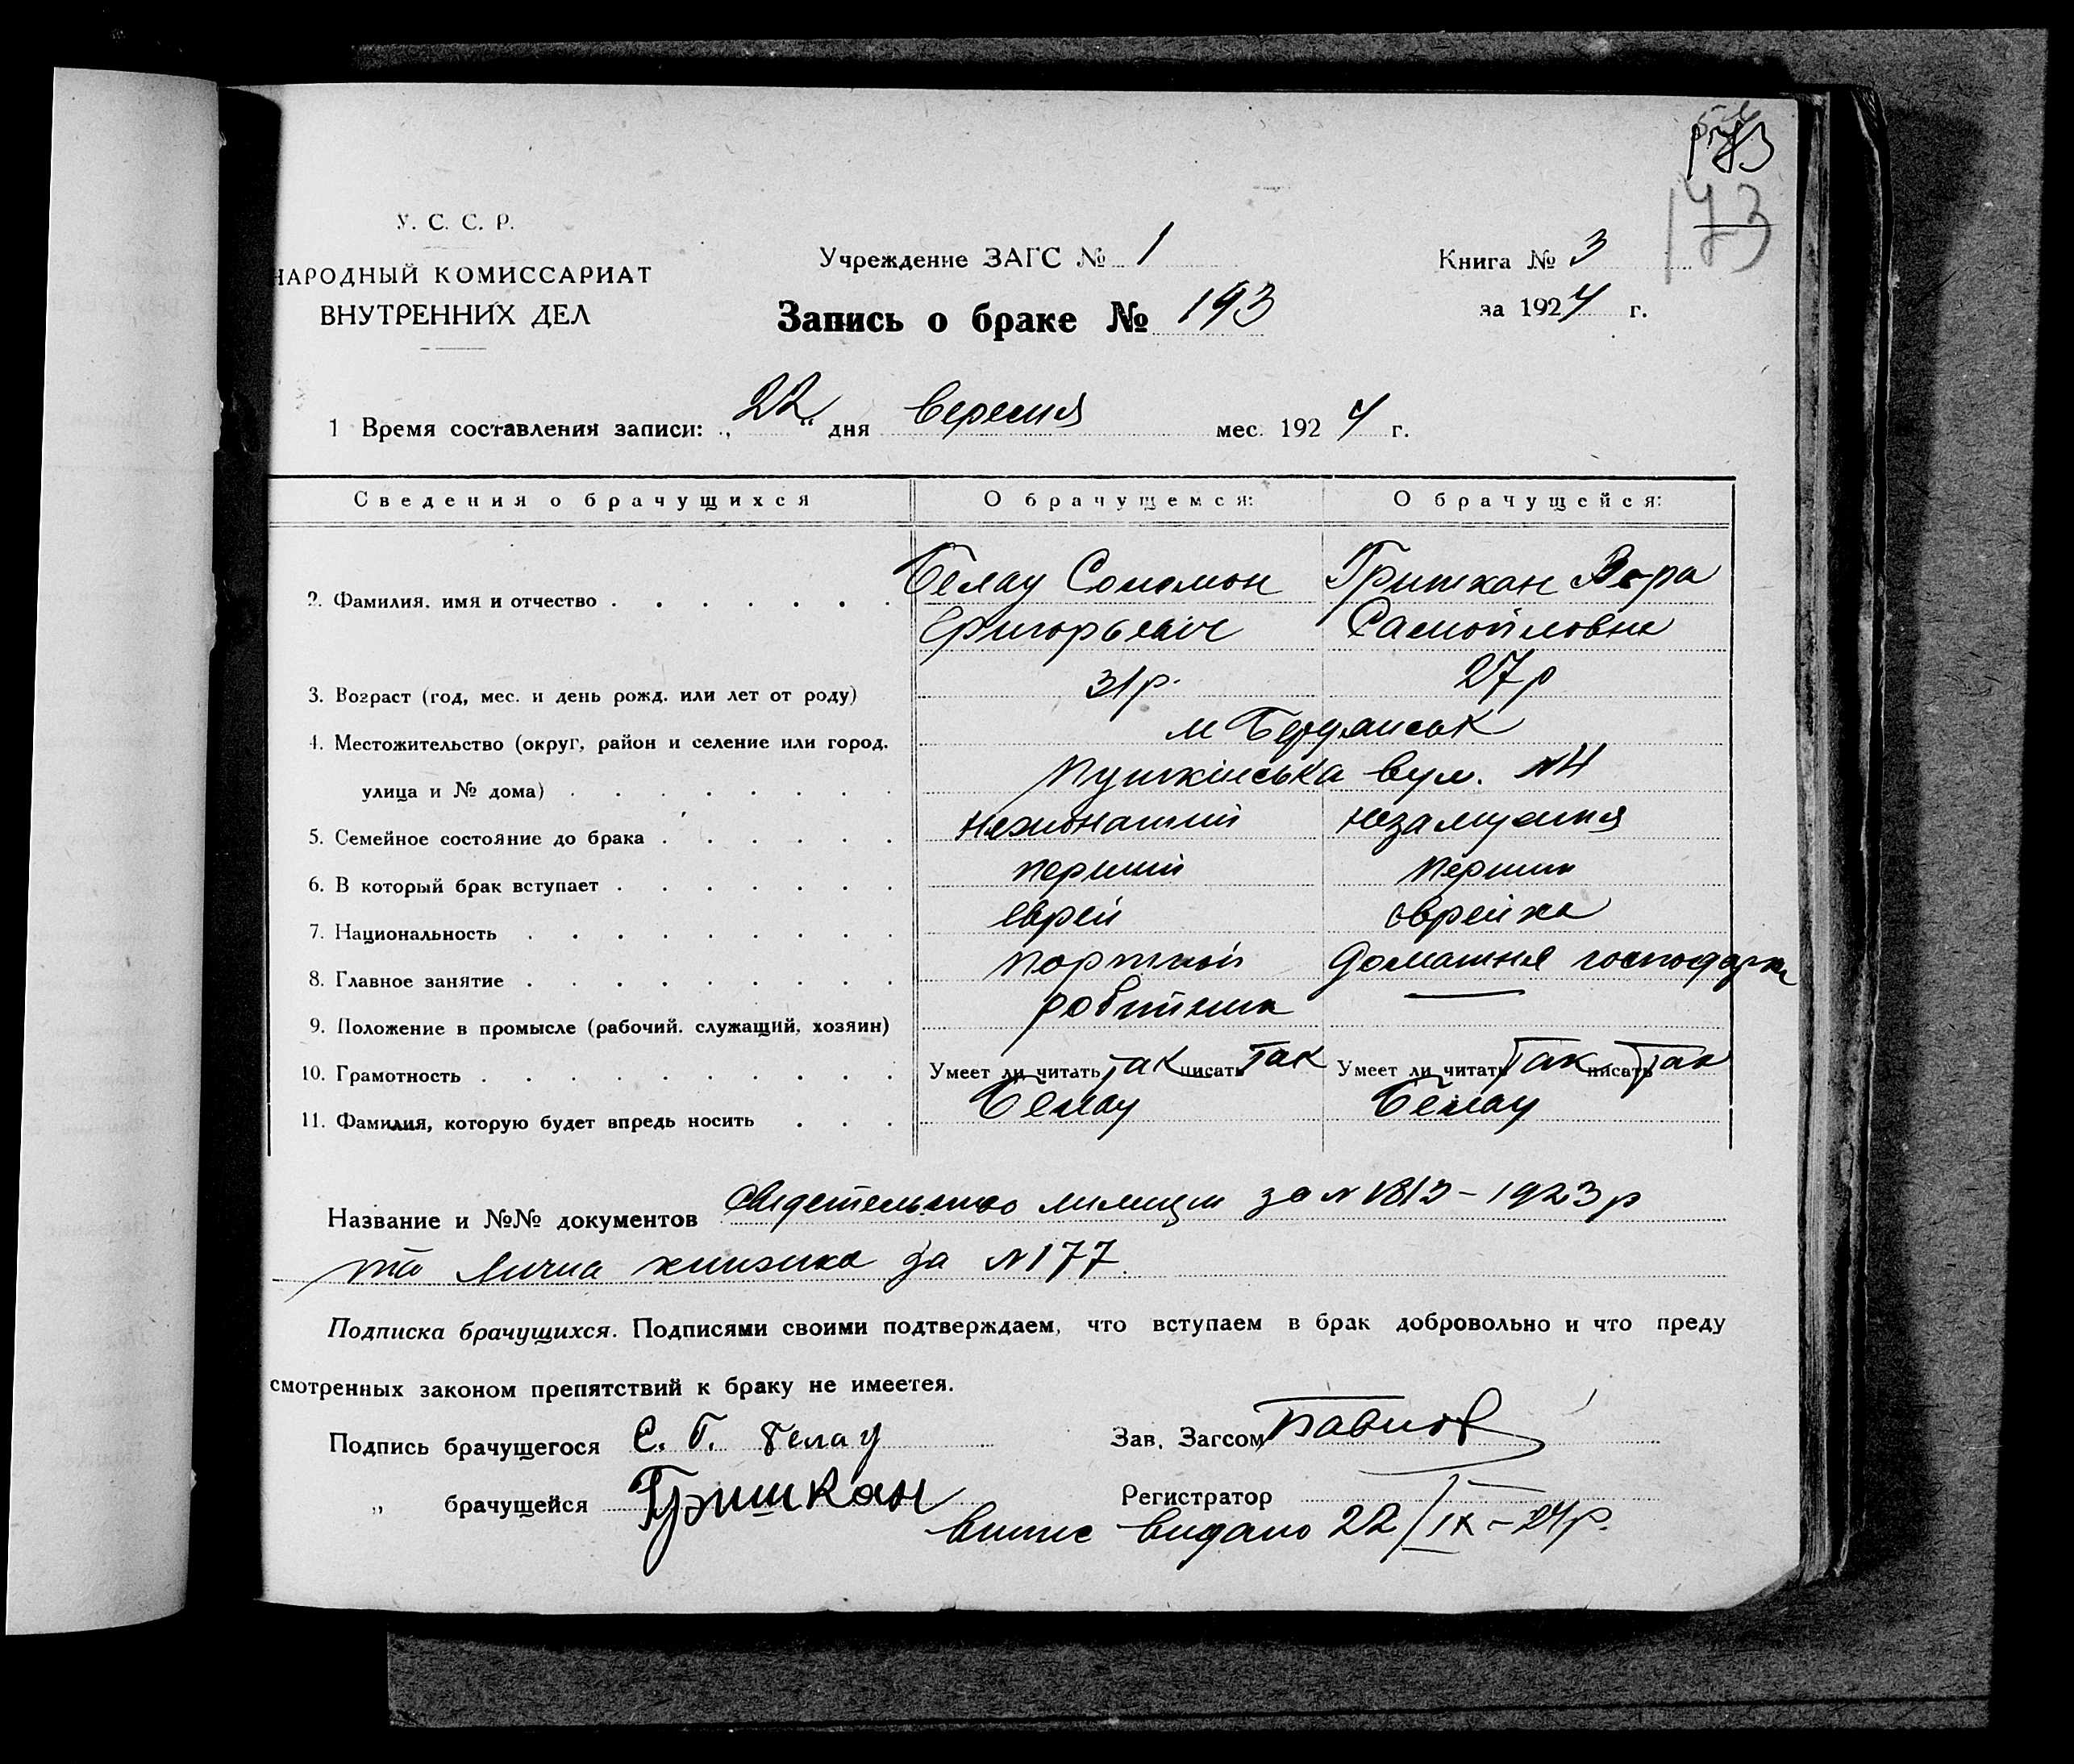 173
173
У. С. С. Р.
НАРОДНЫЙ КОМИССАРИАТ
ВНУТРЕННИХ ДЕЛ
Учреждение ЗАГС № 1
Запись о браке № 193
Книга № 3
за 1924 г.
1 Время составления записи: „22“ дня вересня мес. 1924 г.
Сведения о брачущихся О брачущемся: О брачущейся:
2. Фамилия, имя и отчество Белау Соломон Гришкан Вера
Григорьевич Самойловна
3. Возраст (год, мес. и день рожд. или лет от роду) 31 р. 27 р
4. Местожительство (округ, район и селение или город, м Бердянськ
улица и № дома) Пушкінська вул. №4
5. Семейное состояние до брака нежонатий незамужня
6. В который брак вступает перший перший
7. Национальность еврей еврейка
8. Главное занятие портной домашня господарка
9. Положение в промысле (рабочий, служащий, хозяин) робітник —
10. Грамотность Умеет ли читать так писать так Умеет ли читать так писать так
11. Фамилия, которую будет впредь носить Белау Белау
Название и №№ документов Свидетельство милиции за № 1813 – 1923 р
та лична книжка за № 177.
Подписка брачущихся. Подписями своими подтверждаем, что вступаем в брак добровольно и что преду
смотренных законом препятствий к браку не имеетея.
Подпись брачущегося С. Г. Белау Зав. Загсом Павлов
„ брачущейся Гришкан Регистратор
випис видано 22/IX – 24 р.